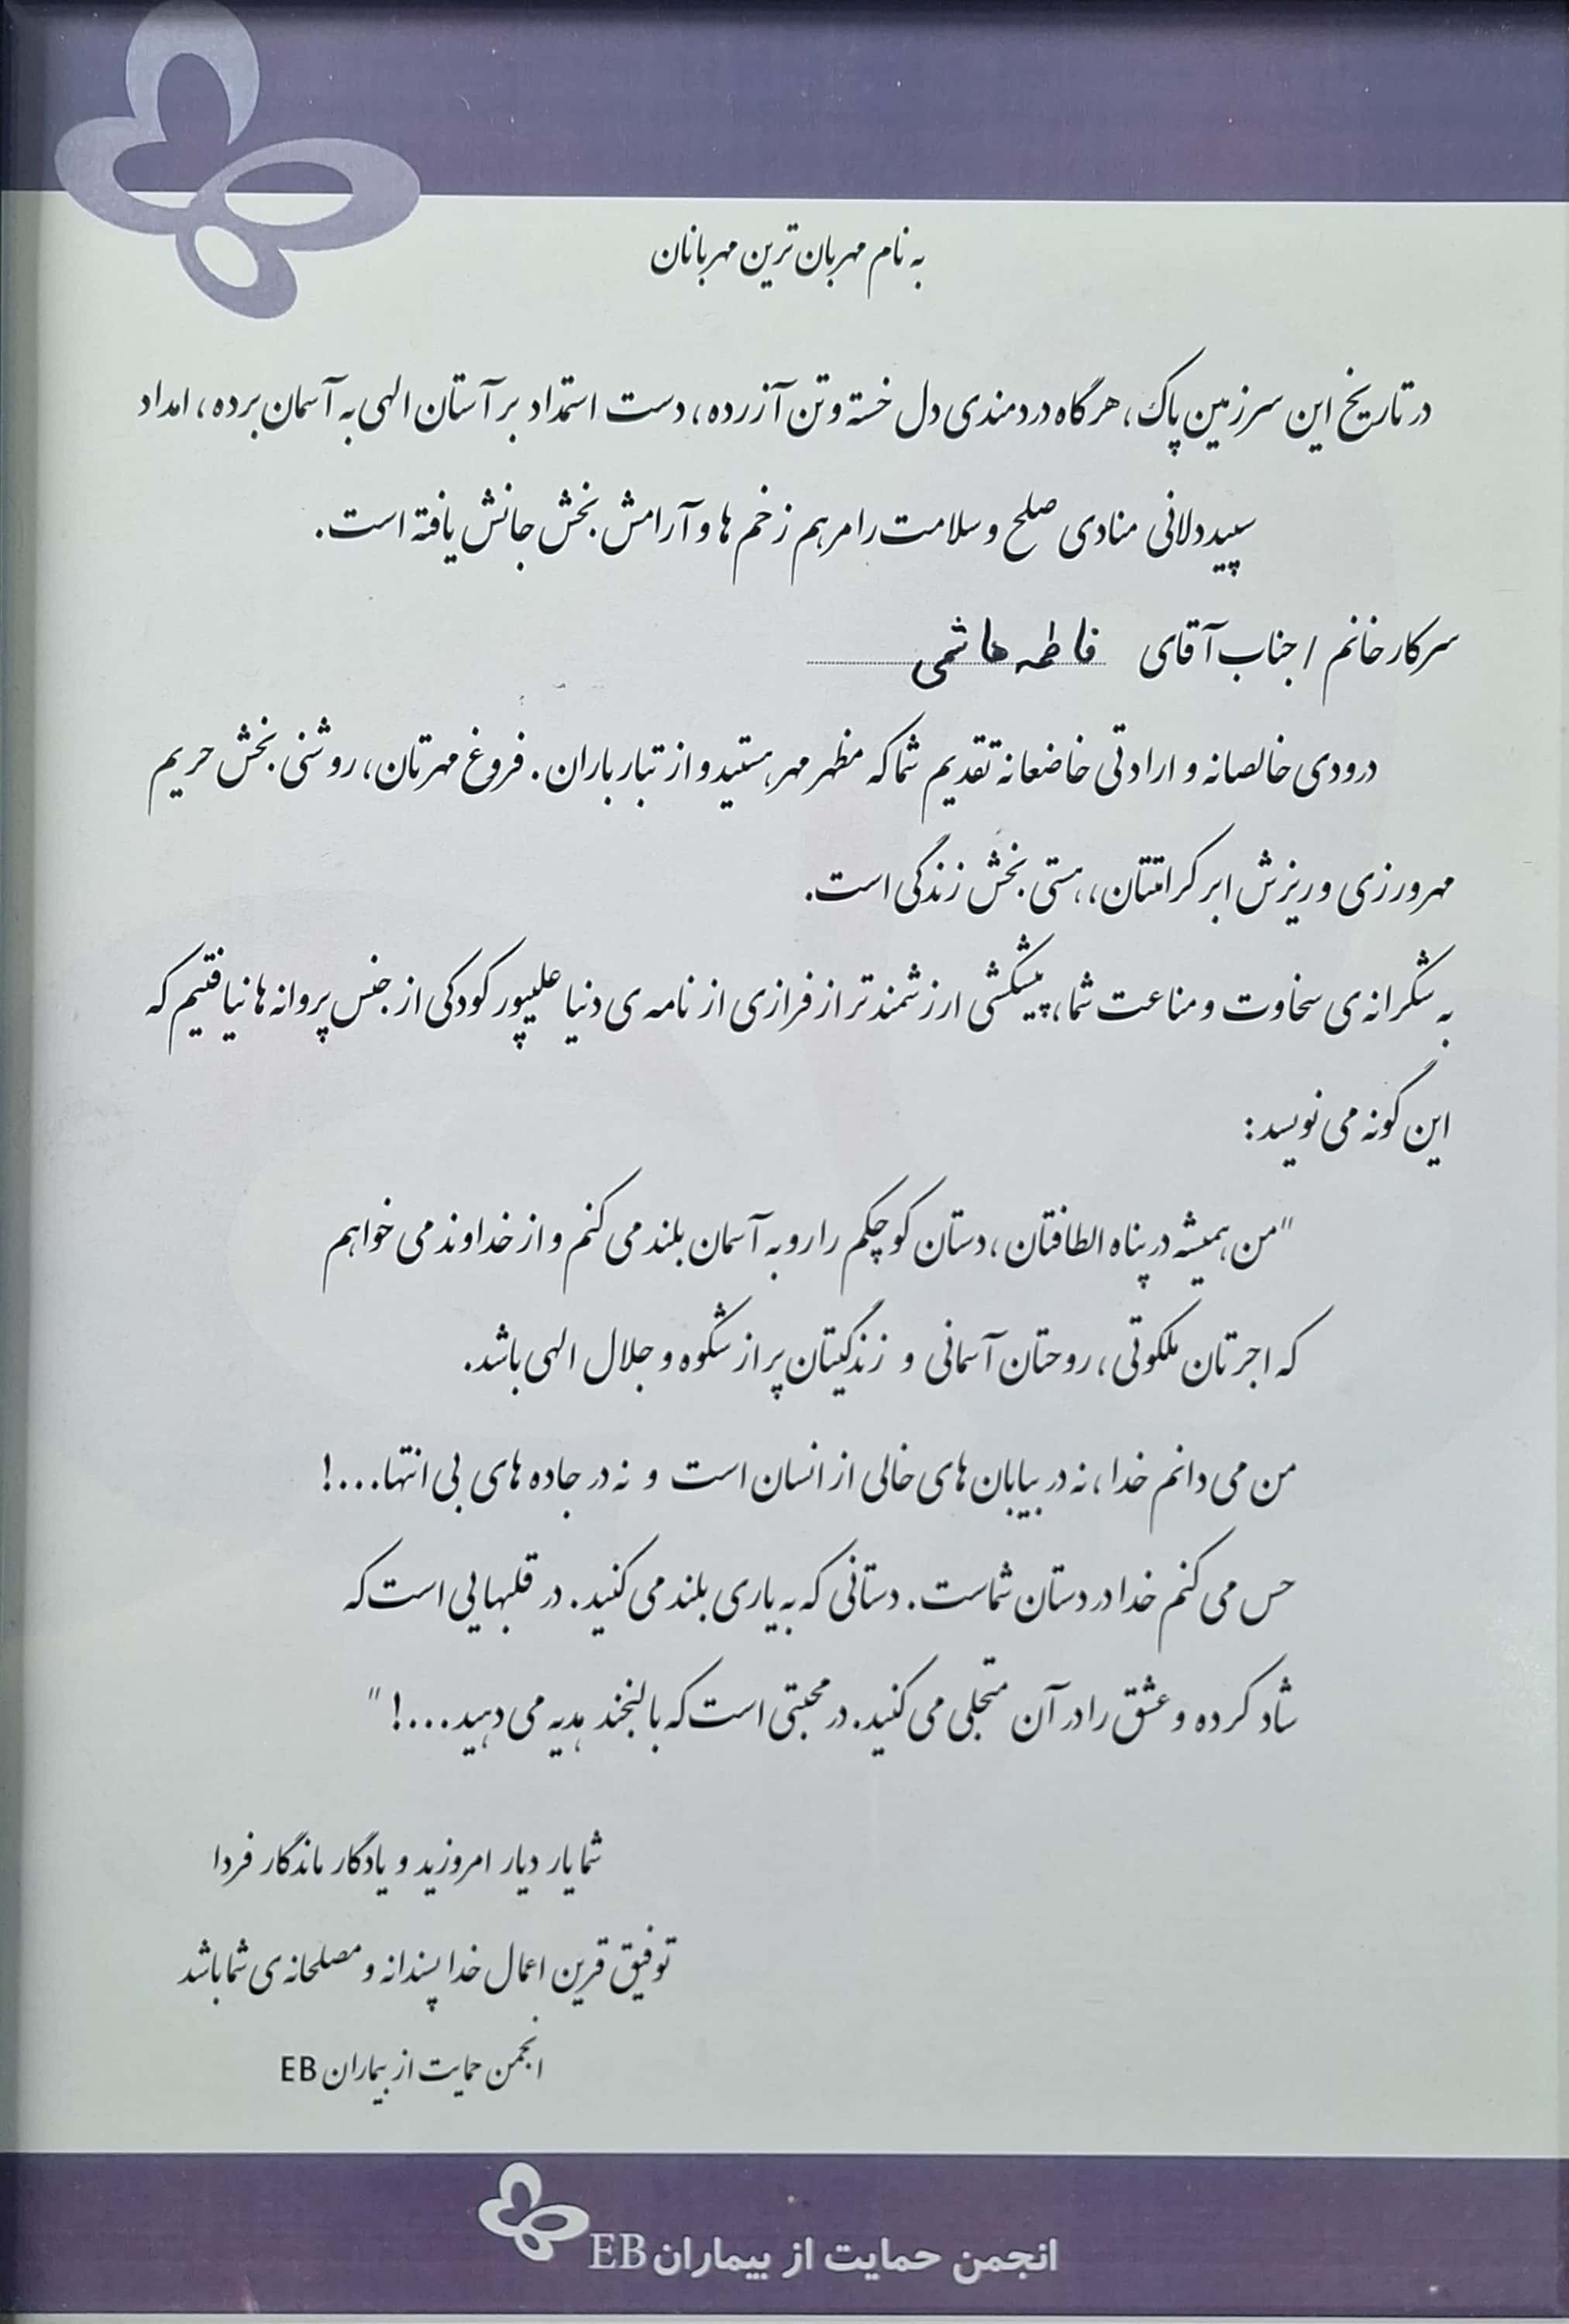 به نام مهربان ترین مهربانان
در تاریخ این سرزمین پاک، هرگاه دردمندی دل خسته و تن آزرده، دست استمداد بر آستان الهی به آسمان برده، امداد
سپیددلانی منادی صلح و سلامت را مرهم زخم ها و آرامش بخش جانش یافته است.
سرکار خانم / جناب آقای فاطمه هاشمی
درودی خالصانه و ارادتی خاضعانه تقدیم شما که مظهر مهر هستید و از تبار باران. فروغ مهرتان، روشنی بخش حریم
مهرورزی و ریزش ابر کرامتتان، هستی بخش زندگی است.
به شکرانه ی سخاوت و مناعت شما، پیشکشی ارزشمندتر از فرازی از نامه ی دنیا علیپور کودکی از جنس پروانه ها نیافتیم که
این گونه می نویسد:
"من همیشه در پناه الطافتان، دستان کوچکم را رو به آسمان بلند می کنم و از خداوند می خواهم
که اجرتان ملکوتی، روحتان آسمانی و زندگیتان پر از شکوه و جلال الهی باشد.
من می دانم خدا، نه در بیابان های خالی از انسان است و نه در جاده های بی انتها...!
حس می کنم خدا در دستان شماست. دستانی که به یاری بلند می کنید. در قلبهایی است که
شاد کرده و عشق را در آن متجلی می کنید. در محبتی است که با لبخند هدیه می دهید...!"
شما یار دیار امروزید و یادگار ماندگار فردا
توفیق قرین اعمال خداپسندانه و مصلحانه ی شما باشد
انجمن حمایت از بیماران EB
انجمن حمایت از بیماران EB